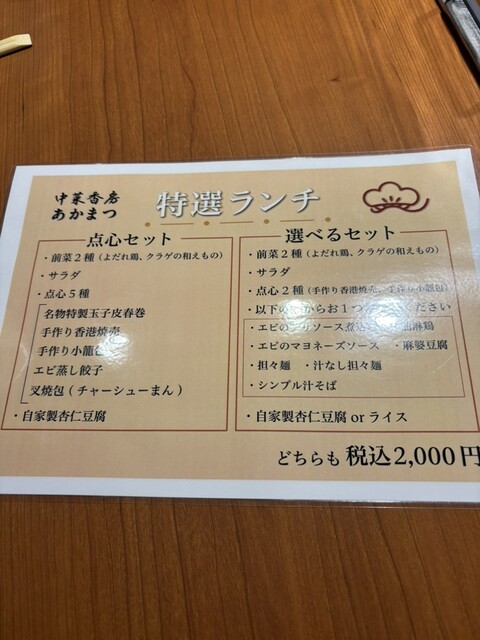 中菜香房
あかまつ
特選ランチ
点心セット
・前菜2種（よだれ鶏、クラゲの和えもの）
・サラダ
・点心5種
名物特製玉子皮春巻
手作り香港焼売
手作り小籠包
エビ蒸し餃子
叉焼包 ( チャーシューまん )
・自家製杏仁豆腐
選べるセット
・前菜2種（よだれ鶏、クラゲの和えもの）
・サラダ
・点心2種（手作り香港焼売、手作り小籠包）
・以下の からお1つ ください
・エビのチリソース煮込 麻鶏
・エビのマヨネーズソース ・麻婆豆腐
・担々麺 ・汁なし担々麺
・シンプル汁そば
・自家製杏仁豆腐 or ライス
どちらも 税込2,000円